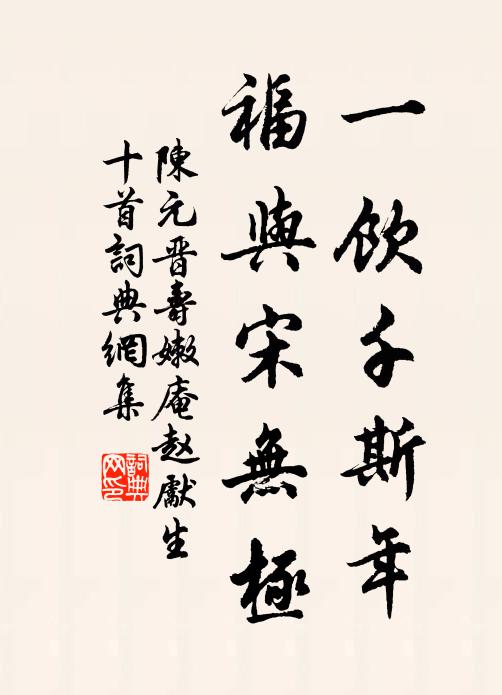 一飲千斯年
福與宋無極
陳元晋壽嫩庵趙獻生
十首詞典網集
詞典
网印